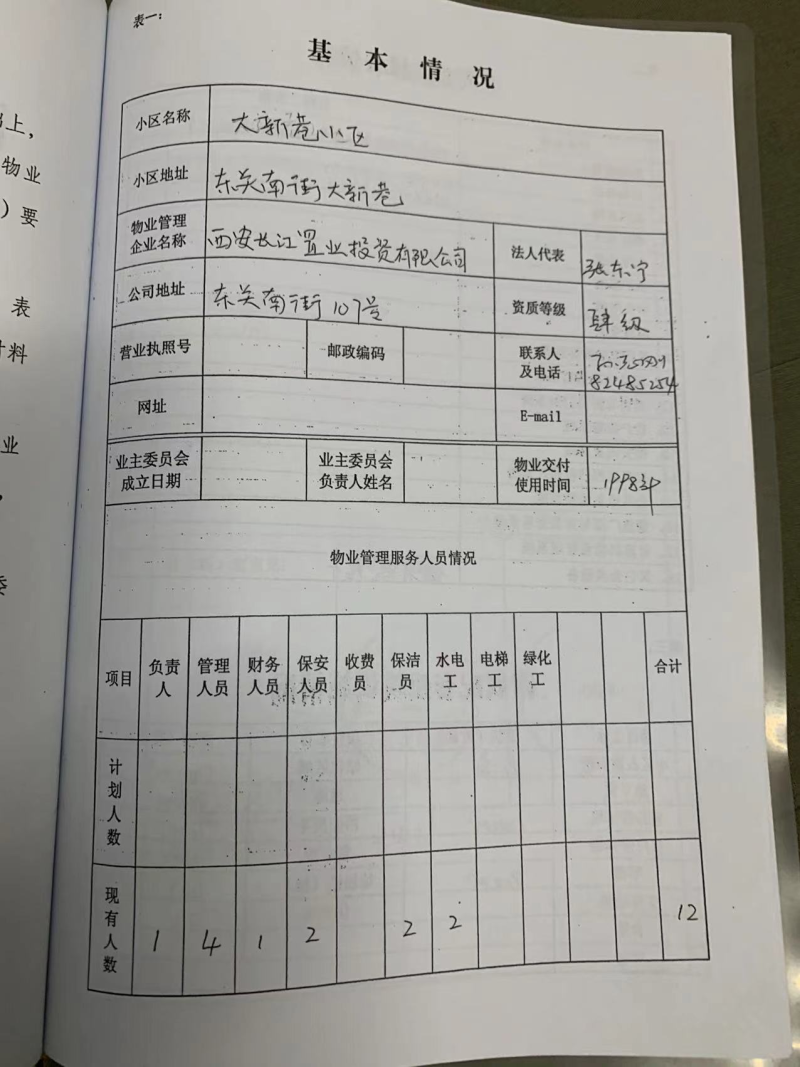 表一:
基本情况
小区名称 大新巷小区
小区地址 东关南街大新巷
物业管理 企业名称 西安长江置业投资有限公司 法人代表 张东宁
公司地址 东关南街107号 资质等级 肆级
营业执照号 邮政编码 联系人 及电话 82485254
网址 E-mail
业主委员会 成立日期 业主委员会 负责人姓名 物业交付 使用时间 1998年
物业管理服务人员情况
项目 负责人 管理人员 财务人员 保安人员 收费员 保洁员 水电工 电梯工 绿化工 合计
计划人数
现有人数 1 4 1 2 2 2 12
上,
物业
)要
表
料
业